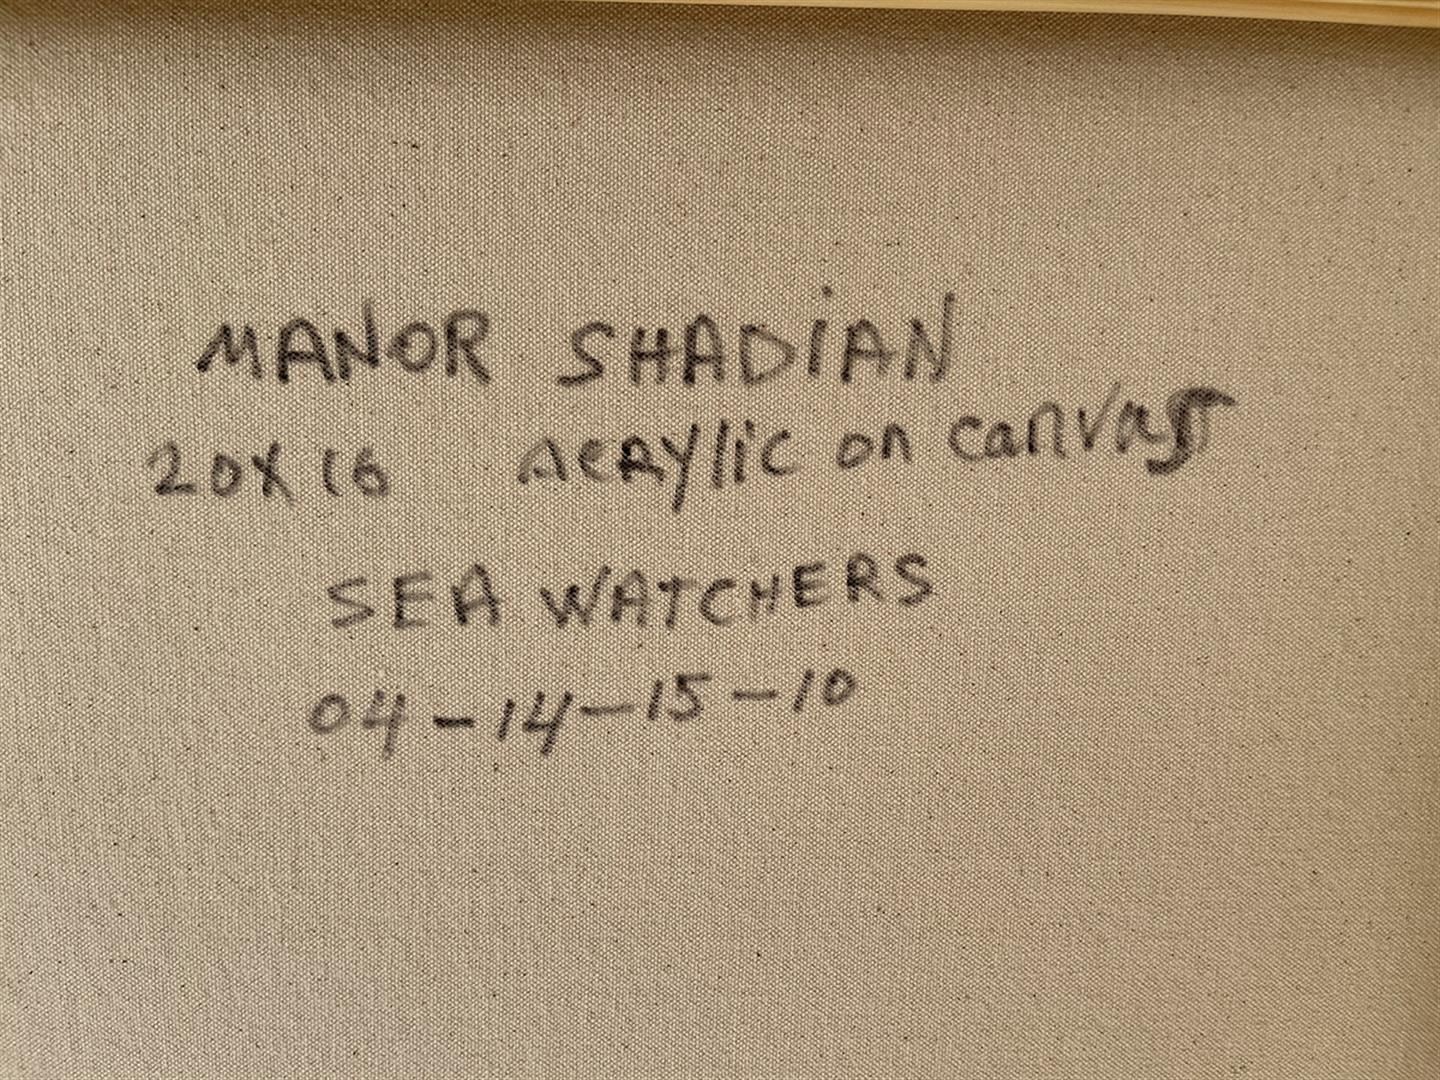 MANOR SHADIAN
20X16 ACRYllic on canvas
SEA WATCHERS
04-14-15-10